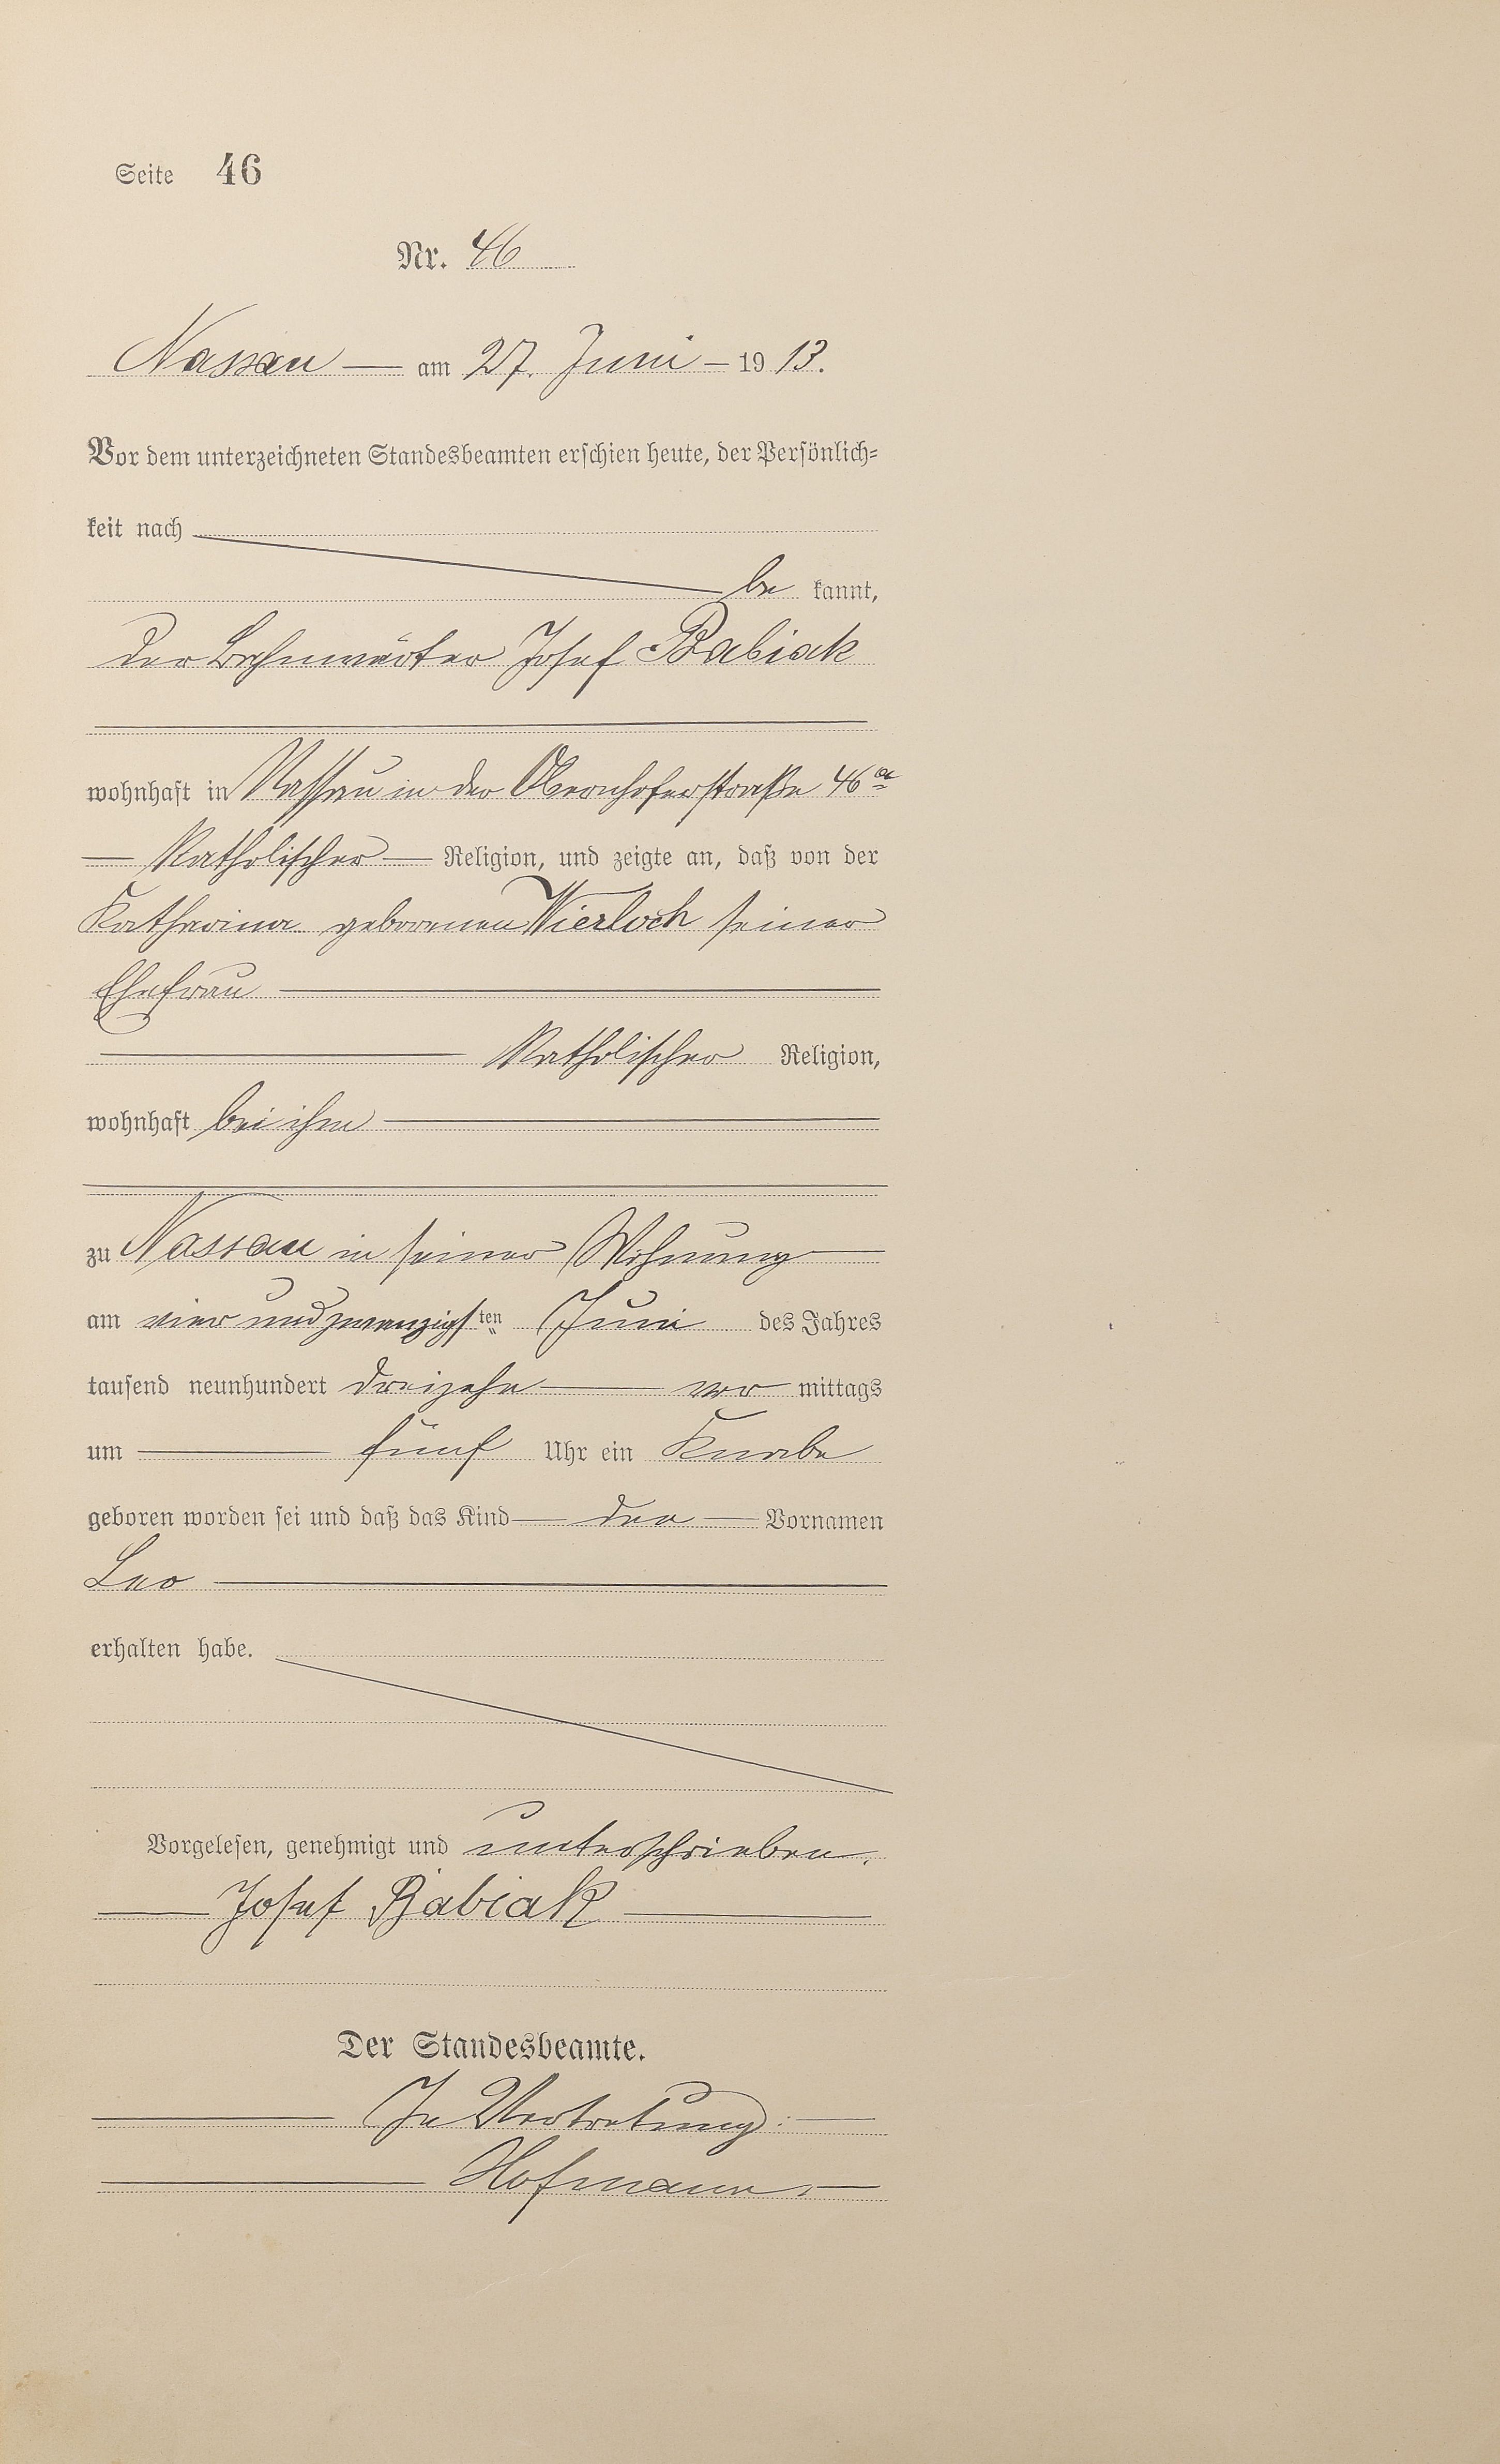 Seite 46
Nr. 46
Nassau — am 27. Juni – 19 13.
Vor dem unterzeichneten Standesbeamten erschien heute, der Persönlich-
keit nach
be kannt,
der Bahnwärter Josef Babiak
wohnhaft in Nassau in der Obernhoferstraße 46a
— Katholischer — Religion, und zeigte an, daß von der
Katharina geborenen Wierloch seiner
Ehefrau
Katholischer Religion,
wohnhaft bei ihm
zu Nassau in seiner Wohnung
am vier und zwanzigsten Juni des Jahres
tausend neunhundert dreizehn — vor mittags
um — fünf Uhr ein Knabe
geboren worden sei und daß das Kind — den — Vornamen
Leo
erhalten habe.
Vorgelesen, genehmigt und unterschrieben.
Josef Babiak
Der Standesbeamte.
In Vertretung:
Hofmann